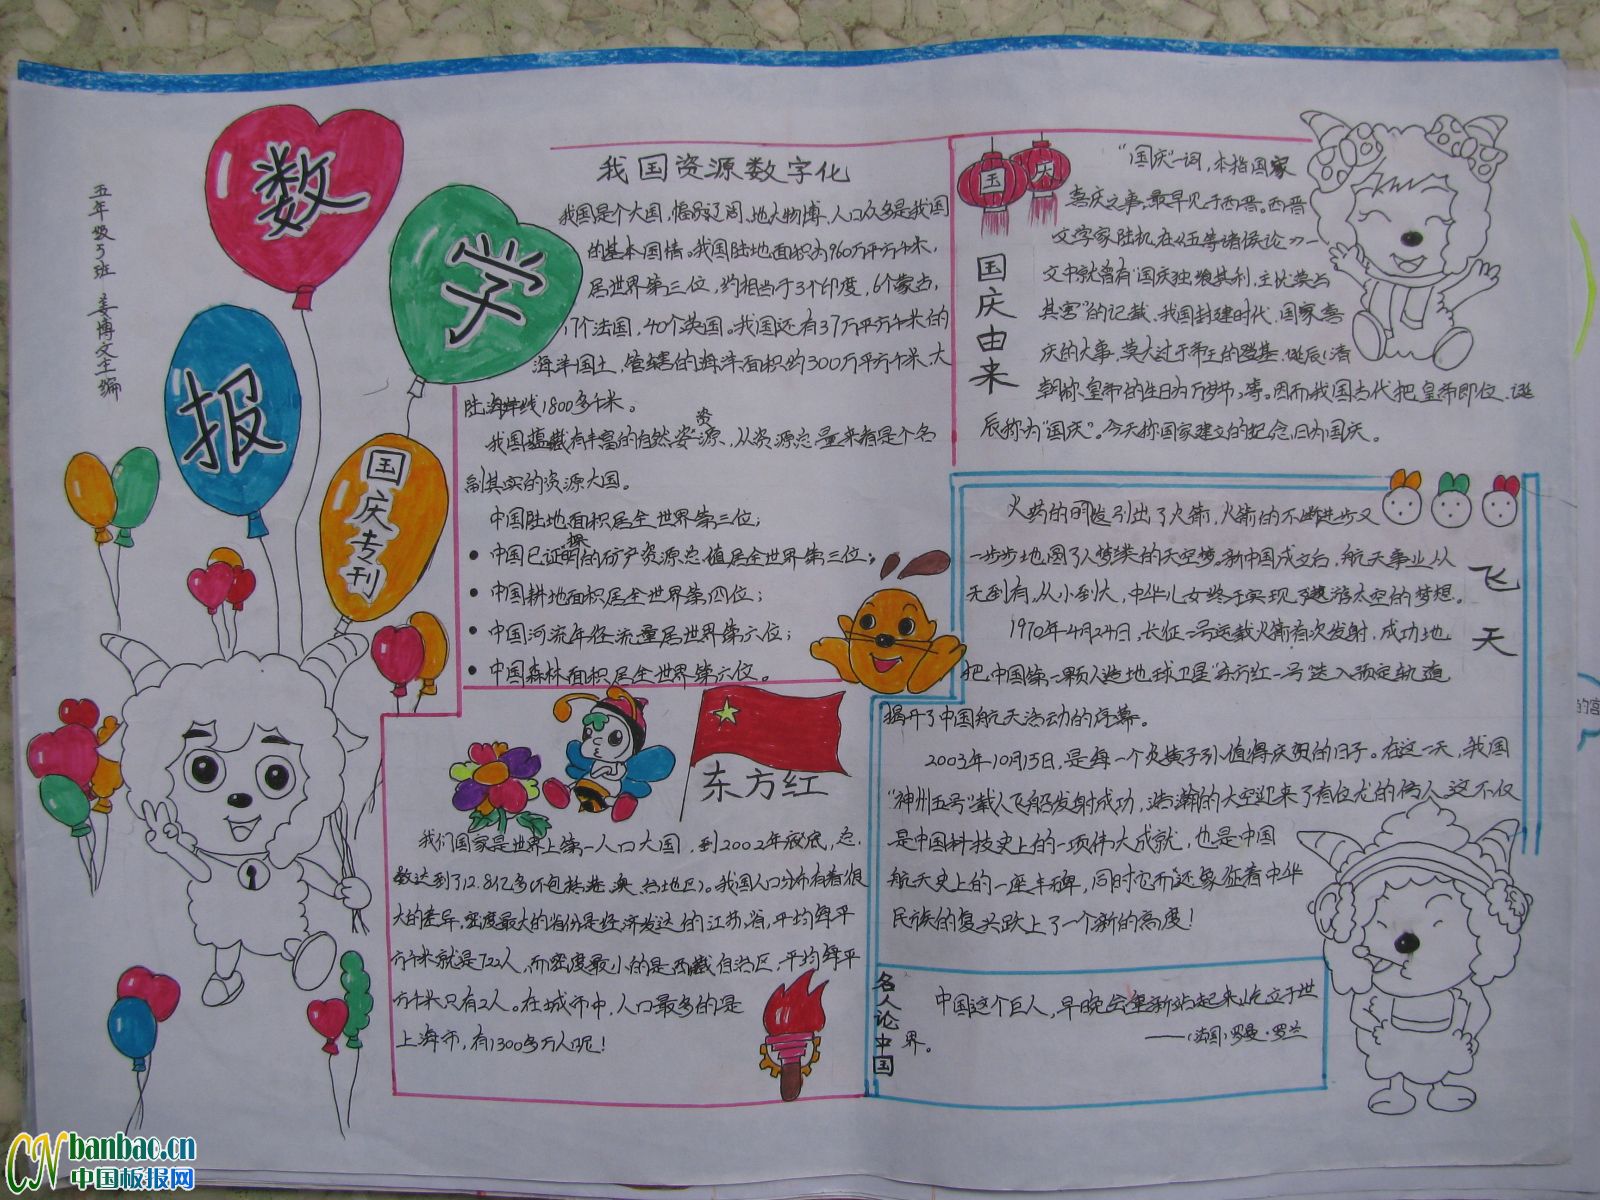 数学报
国庆专刊
五年级5班 姜博文主编
我国资源数字化
我国是个大国，幅员辽阔，地大物博，人口众多是我国
的基本国情。我国陆地面积为960万平方千米，
居世界第三位，约相当于3个印度，6个蒙古，
17个法国，40个英国。我国还有37万平方千米的
海洋国土，管辖的海洋面积约300万平方千米，大
陆海岸线1800多千米。
我国蕴藏有丰富的自然资源，从资源总量来看是个名
副其实的资源大国。
中国陆地面积居全世界第三位；
中国已证明的矿产资源总值居全世界第三位；
中国耕地面积居全世界第四位；
中国河流年径流量居世界第六位；
中国森林面积居全世界第六位。
国庆
国庆由来
“国庆”一词，本指国家
喜庆之事，最早见于西晋。西晋
文学家陆机在《五等诸侯论》一
文中就曾有“国庆独飨其利，主忧莫与
其害”的记载、我国封建时代、国家喜
庆的大事，莫大过于帝王的登基、诞辰(清
朝称皇帝的生日为万岁节)等。因而我国古代把皇帝即位、诞
辰称为“国庆”。今天称国家建立的纪念日为国庆。
飞天
火药的研发引出了火箭，火箭的不断进步又
一步步地圆了人类的天空梦。新中国成立后，航天事业从
无到有，从小到大，中华儿女终于实现了遨游太空的梦想。
1970年4月24日，长征一号运载火箭首次发射，成功地
把中国第一颗人造地球卫星“东方红一号”送入预定轨道
揭开了中国航天活动的序幕。
2003年10月15日，是每一个炎黄子孙值得庆贺的日子。在这一天，我国
“神州五号”载人飞船发射成功，浩瀚的太空迎来了首位龙的传人。这不仅
是中国科技史上的一项伟大成就，也是中国
航天史上的一座丰碑，同时它而还象征着中华
民族的复兴跃上了一个新的高度！
东方红
我们国家是世界上第一人口大国，到2002年底，总
数达到了12.8亿多(不包括港、澳、台地区)。我国人口分布有着很
大的差异，密度最大的省份是经济发达的江苏省，平均每平
方千米就是722人，而密度最小的是西藏自治区，平均每平
方千米只有2人。在城市中，人口最多的是
上海市，有1300多万人呢！
名人论中国
中国这个巨人，早晚会重新站起来屹立于世
界。
——(法国)罗曼·罗兰
CN banbao.cn
中国板报网